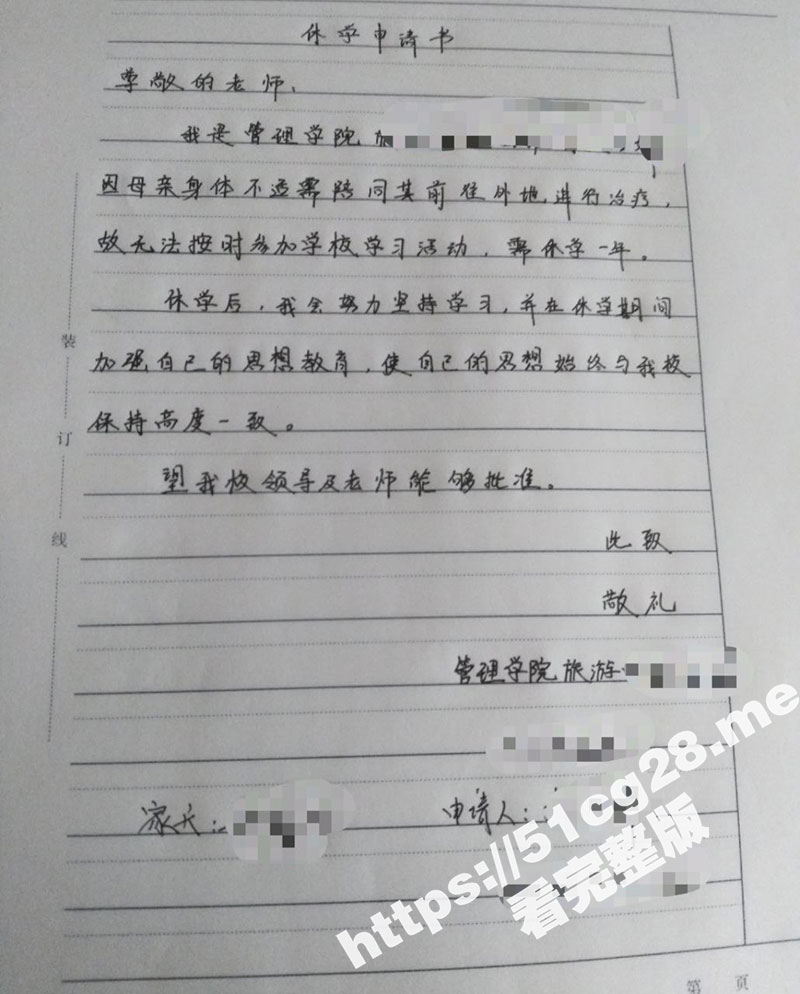 休学申请书
尊敬的老师、
我是管理学院
因母亲身体不适需陪同其前往外地进行治疗,
故无法按时参加学校学习活动,需休学一年。
休学后,我会努力坚持学习,并在休学期间
加强自己的思想教育,使自己的思想始终与我校
保持高度一致。
望我校领导及老师能够批准。
此致
敬礼
管理学院旅游
家长:
申请人:
装
订
线
第 页
https://51cg28.me
看完整版